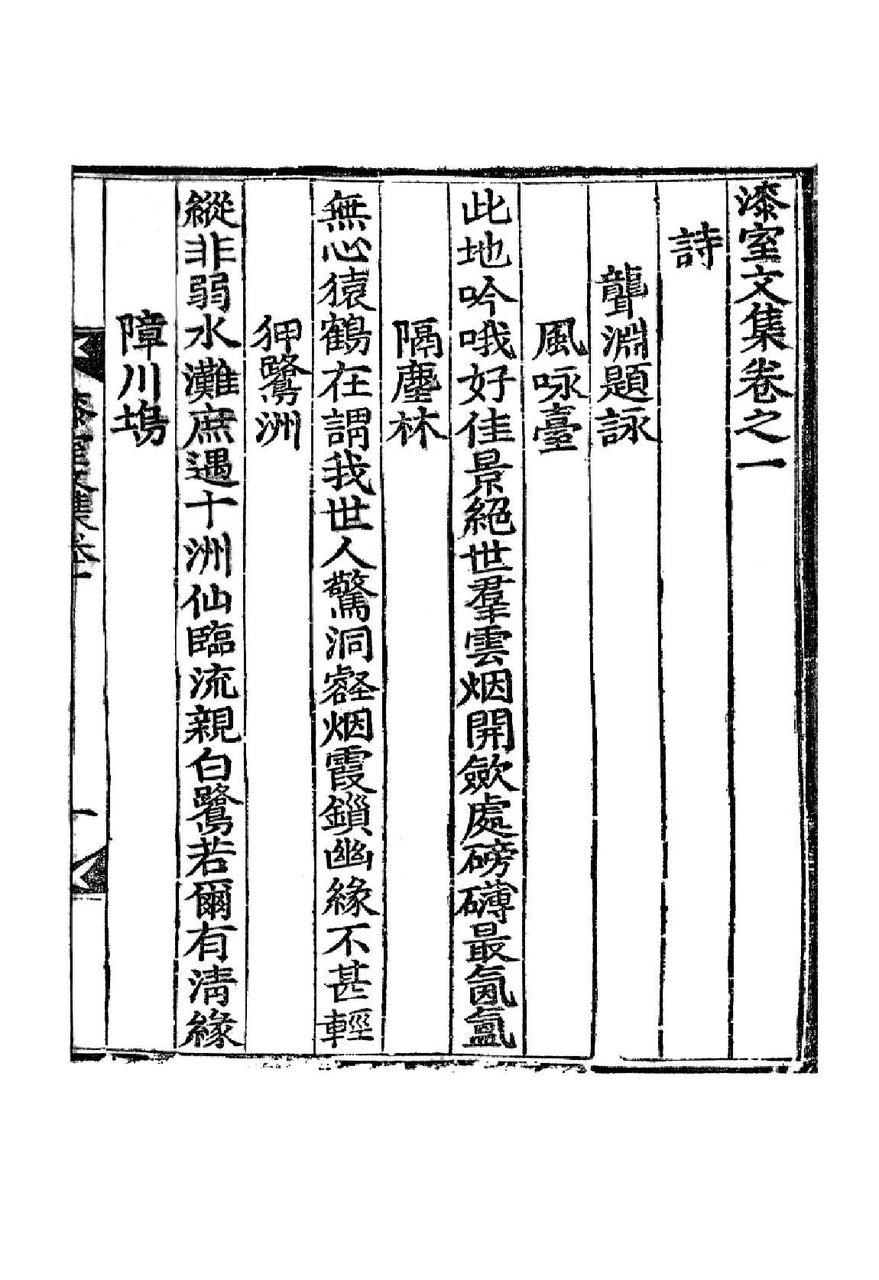 漆室文集卷之一
詩
聾淵題詠
風咏臺
此地吟哦好佳景絕世羣雲烟開歛處磅礴最氤氳
隔塵林
無心猿鶴在謂我世人驚洞壑烟霞鎖幽緣不甚輕
狎鷺洲
縱非弱水灘庶遇十洲仙臨流親白鷺若爾有淸緣
障川塢
漆室文集卷一
一